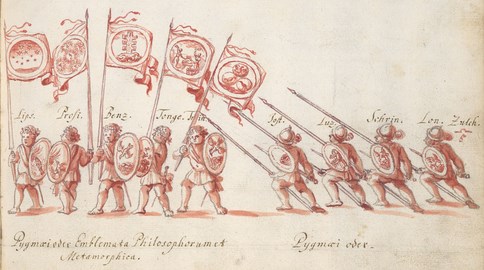 Lips. Prosi. Benz. Tonge. Join. Jost. Luz. Schrin. Lon. Zulch.
Pygmæi oder Emblemata Philosophorum et
Metamorphica.
Pygmæi oder.